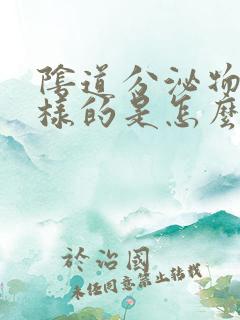 陰道分泌物
樣的是怎麼
於治國
未經同意禁止轉載